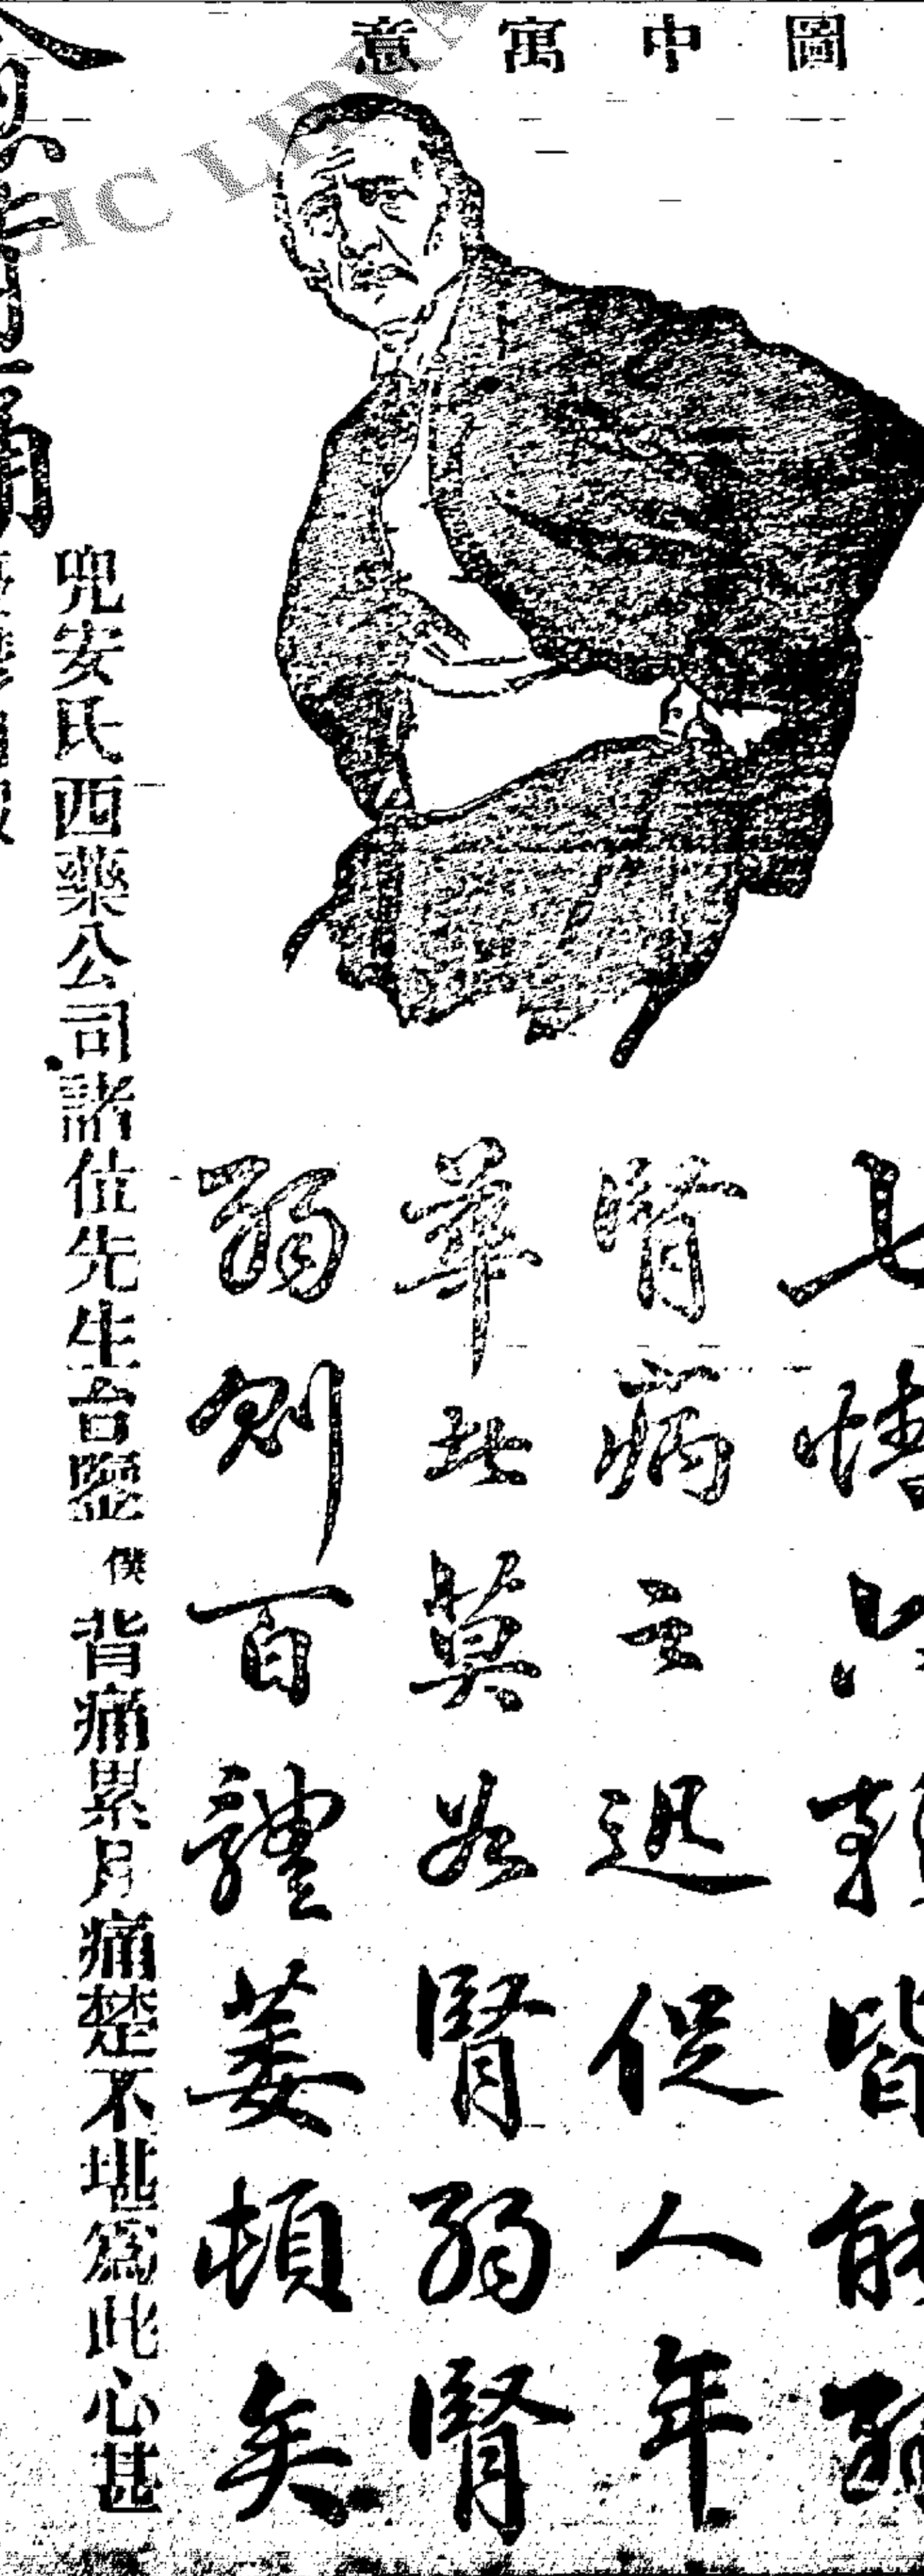 圖中寓意
七情六賴皆能弱
腎病之迅促人年
華此莫如腎弱腎
弱則百體萎頓矣
兜安氏西藥公司諸位先生台鑒僕背痛累月痛楚不堪為此心甚
LIC LIB